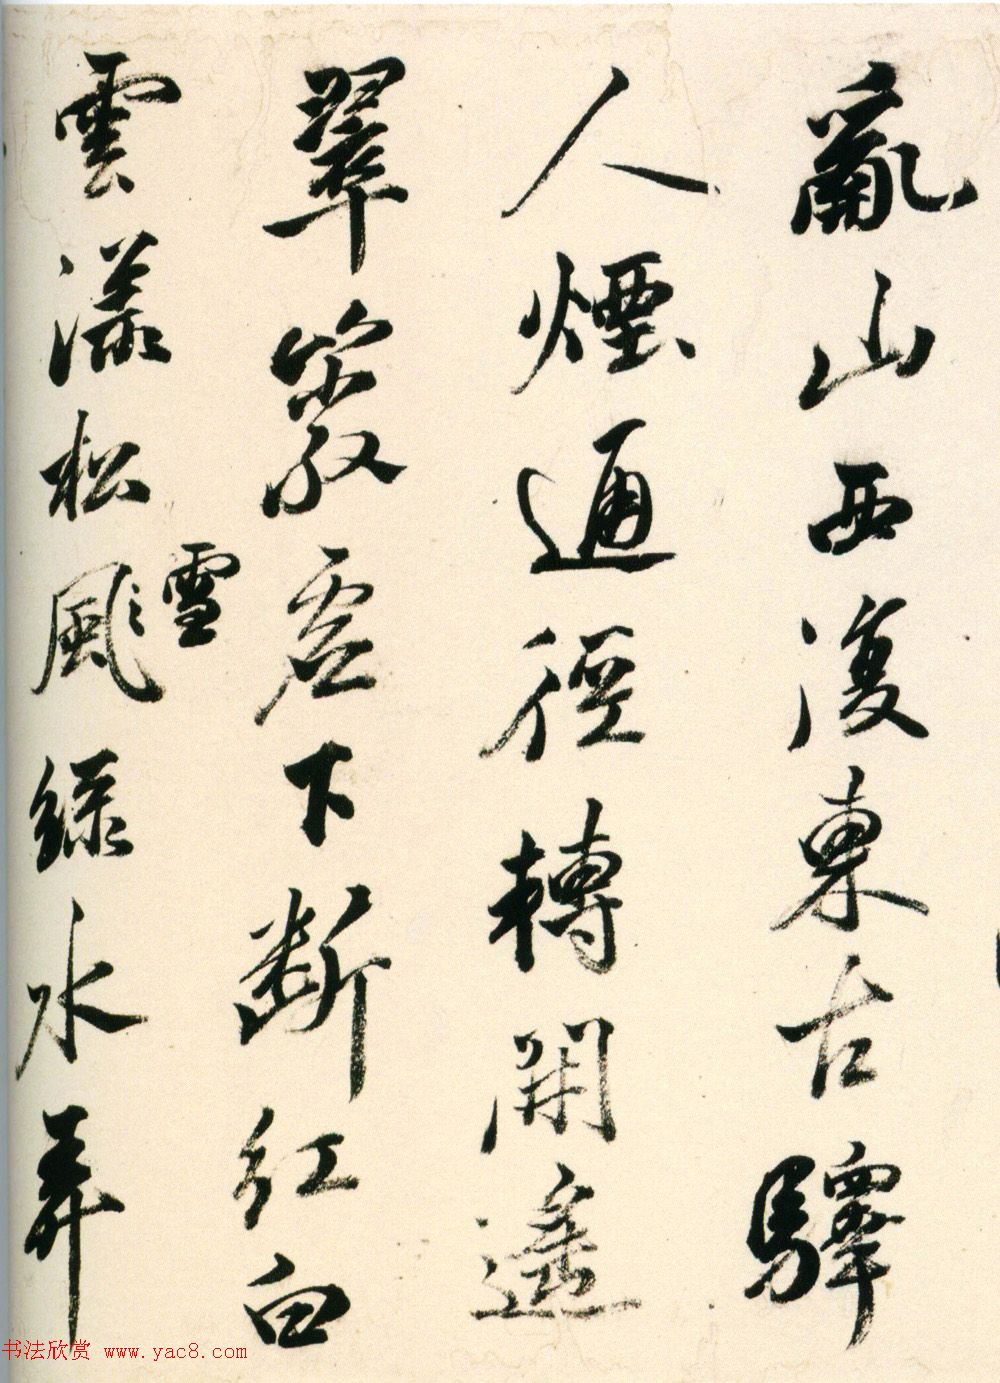 亂山西復東古驛
人煙逥徑轉開遙
翠叢虛下斷紅白
雪
雲漾松風綠水弄
书法欣赏 www.yac8.com